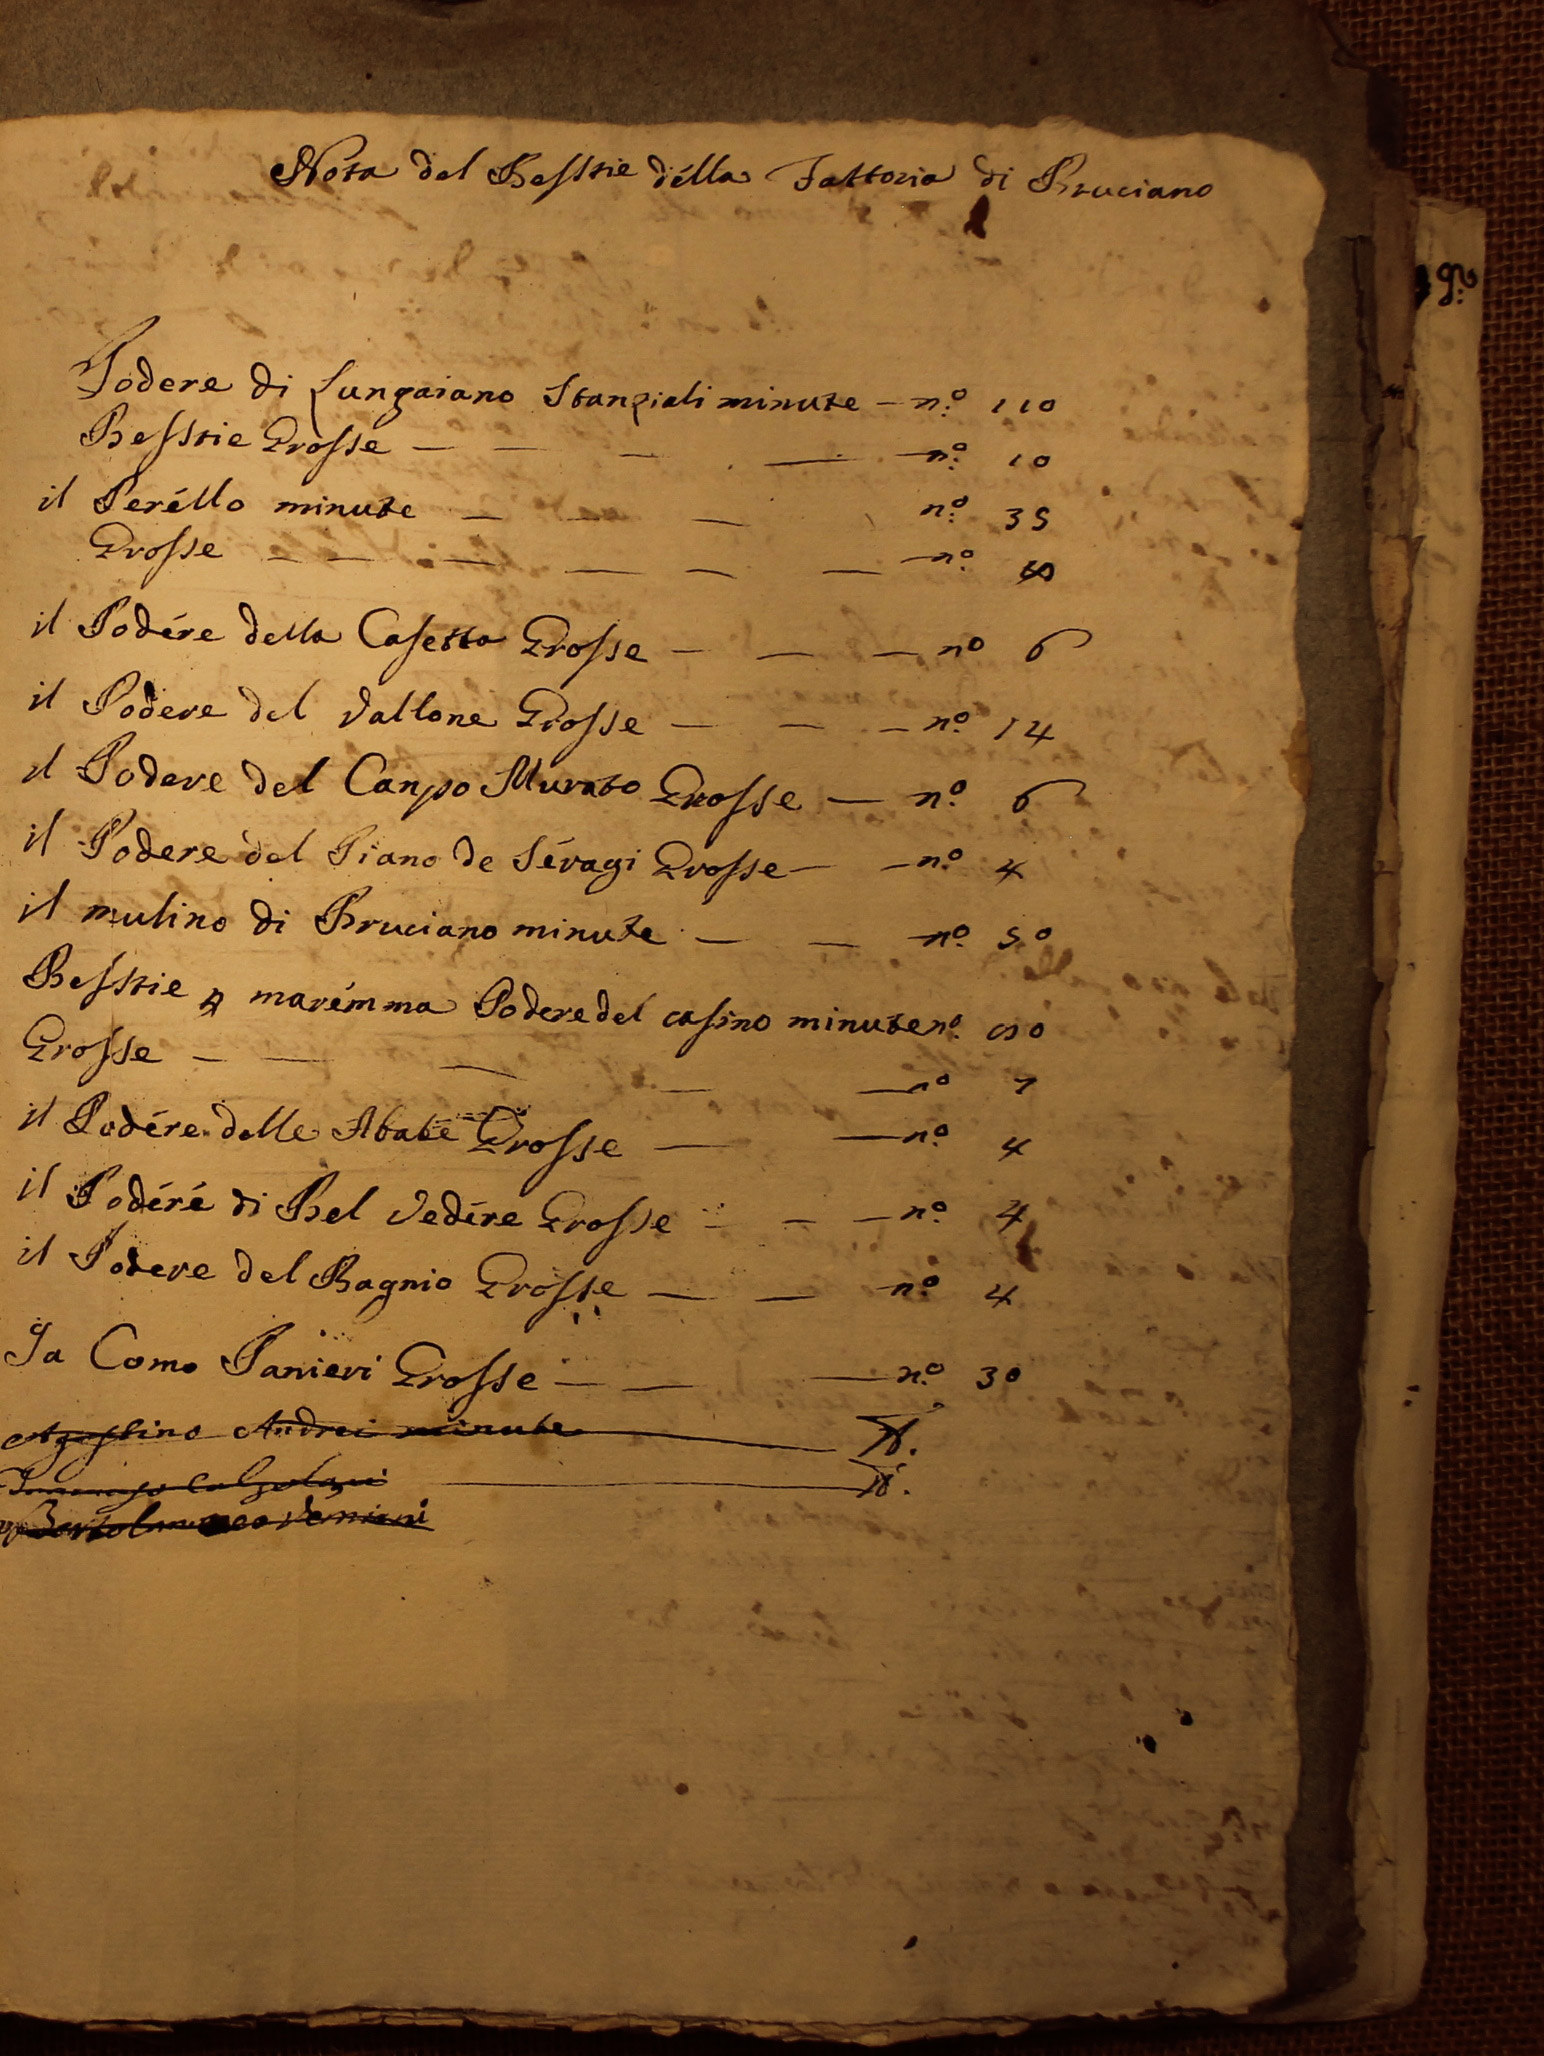 Nóta del Besstie délla Fattoria di Bruciano
Podere di Lungaiano Stanziali minute — n.º 110
Besstie Grosse — — — — n.º 10
il Peréllo minute — — — n.º 35
Grosse — — — — — — n.º
il Podére della Casetta Grosse — — — nº 6
il Podere del Vallone Grosse — — — n.º 14
il Podere del Canpo Murato Grosse — n.º 6
il Podere del Piano de Séragi Grosse — — n.º 4
il mulino di Bruciano minute — — n.º 50
Besstie marémma Podere del casino minute n.º
Grosse — — — — — nº 7
il Podére delle Abate Grosse — — n.º 4
il Podéré di Bel Vedére Grosse — — — n.º 4
il Podere del Bagnio Grosse — — n.º 4
Ja Como Panieri Grosse — — — n.º 30
Agostino Andrei minute — N.
— N.